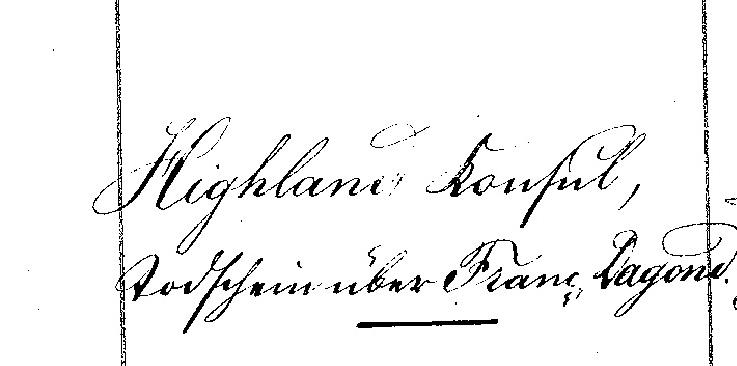 Highland Konsul,
Todschein über Franç. Dagond.